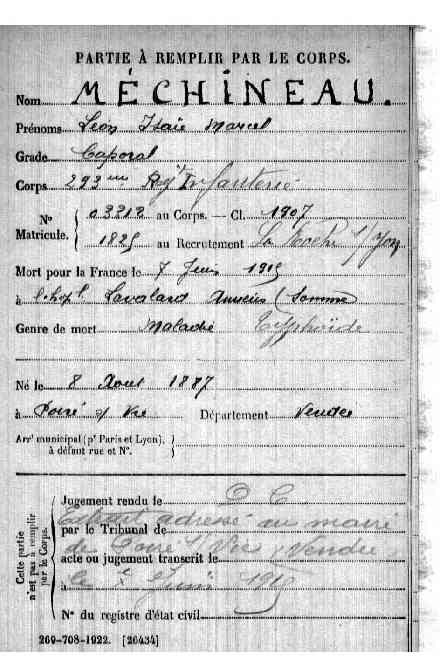 PARTIE À REMPLIR PAR LE CORPS.
Nom MÉCHINEAU.
Prénoms Léon Isaïe Marcel
Grade Caporal
Corps 293me Rgt Infanterie
N° Matricule. { 03312 au Corps. — Cl. 1907
1825 au Recrutement La Roche s/Yon
Mort pour la France le 7 Juin 1915
à l'hopl. Lavalard Amiens (Somme
Genre de mort Maladie Typhoïde
Né le 8 Aout 1887
à Poiré s/ Vie Département Vendée
Arrt municipal (pr Paris et Lyon), à défaut rue et N°.
Cette partie n'est pas à remplir par le Corps.
Jugement rendu le D C
Extrait adressé au maire
par le Tribunal de
de Poiré s/ Vie Vendée
acte ou jugement transcrit le
à le Juin 1915
N° du registre d'état civil
269-708-1922. [26434]